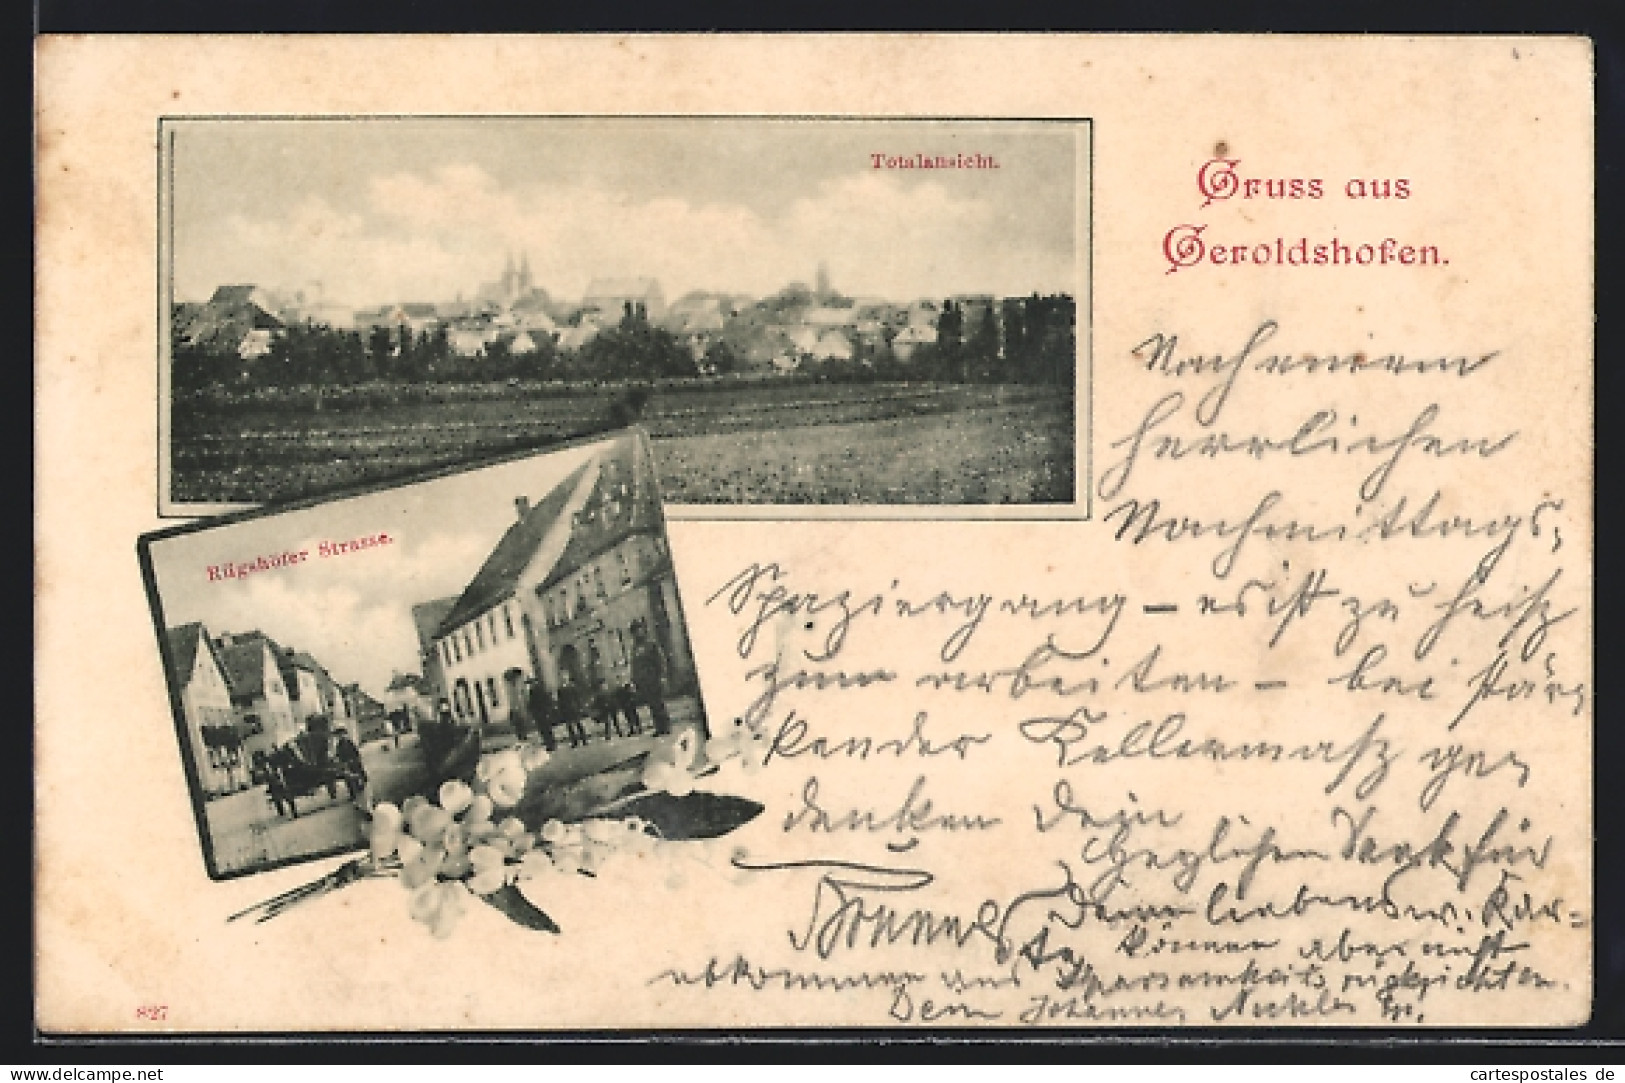 Totalansicht.
Gruss aus
Geroldshofen.
Rügshöfer Strasse.
Nach einem
herrlichen
Nachmittags-
Spaziergang – es ist zu heiß
zum arbeiten – bei stär-
kender Kellermaß ge-
denken Dein
Herzlichen Dank für
Deine liebensw. Kar-
te, können aber nicht
abkommen aus Sparsamkeitsrücksichten.
Dein Johannes
827
www.delcampe.net
cartespostales de